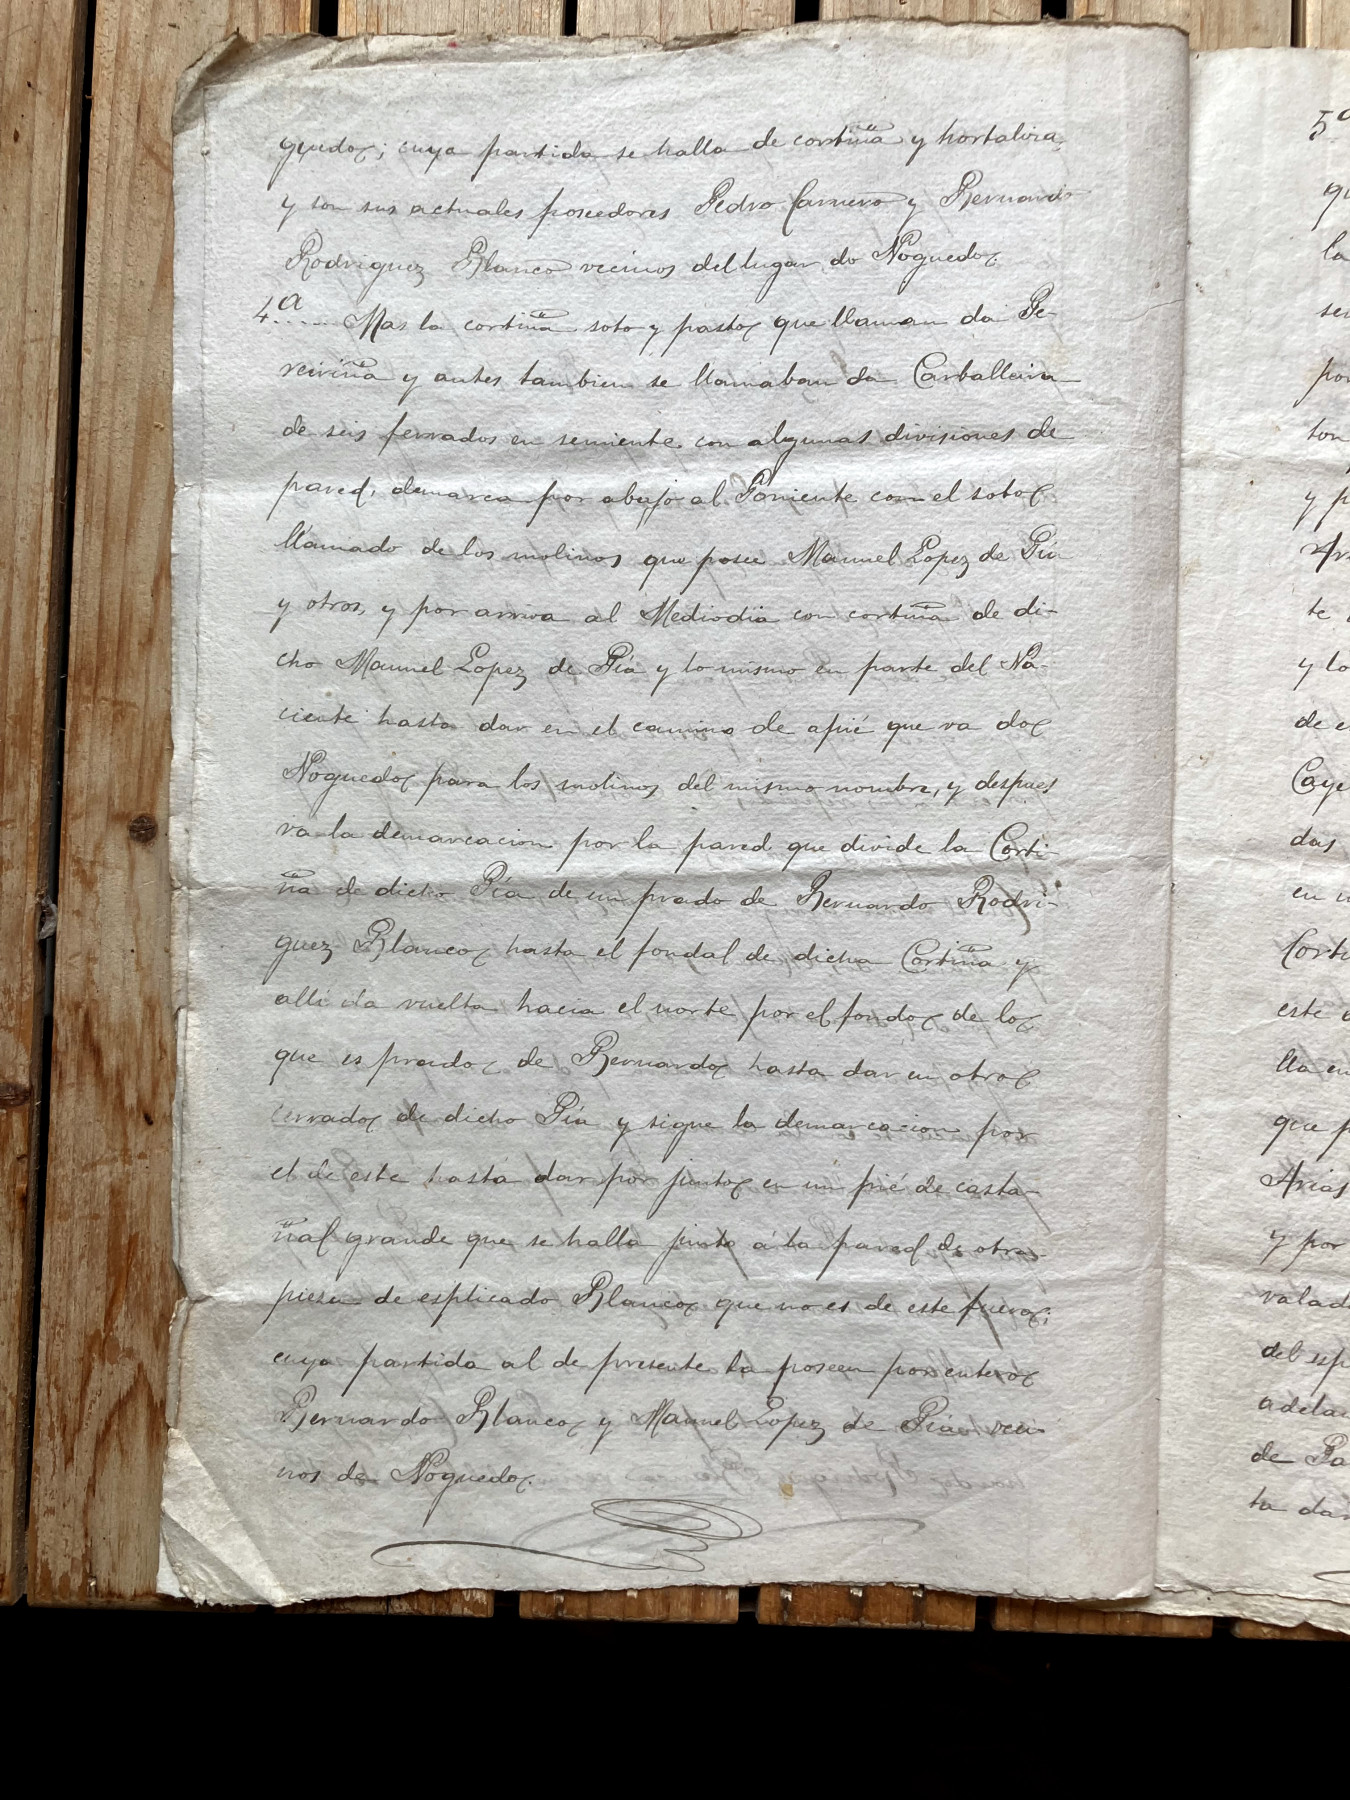 guedo; cuya partida se halla de cortiña y hortaliza,
y son sus actuales poseedores Pedro Carnero y Bernardo
Rodriguez Blanco vecinos del lugar do Noguedo.
4.ª..... Mas la cortiña soto y pasto que llaman da Pe-
reiriña y antes tambien se llamaban da Carballeira
de seis ferrados en semiente con algunas divisiones de
pared, demarca por abajo al Poniente con el soto
llamado de los molinos que posee Manuel Lopez de Pía
y otros, y por arriva al Mediodia con cortiña de di-
cho Manuel Lopez de Pía y lo mismo en parte del Na-
ciente hasta dar en el camino de apié que va do
Noguedo para los molinos del mismo nombre, y despues
va la demarcacion por la pared que divide la Corti-
ña de dicho Pía de un prado de Bernardo Rodri-
guez Blanco hasta el fondal de dicha Cortiña y
alli da vuelta hacia el norte por el fondo de lo
que es prado de Bernardo hasta dar en otro
cerrado de dicho Pía y sigue la demarcacion por
el de este hasta dar por junto en un pié de casta-
ñal grande que se halla junto á la pared de otra
pieza de esplicado Blanco que no es de este fuero;
cuya partida al de presente la poseen por entero
Bernardo Blanco y Manuel Lopez de Pía veci-
nos de Noguedo.
5ª
qu
la
ser
por
son
y p
te
y lo
de e
Caye
das
en u
Corti
este
lla en
que p
Arias
y por
valad
del esp
adelan
de Pa
ta dar